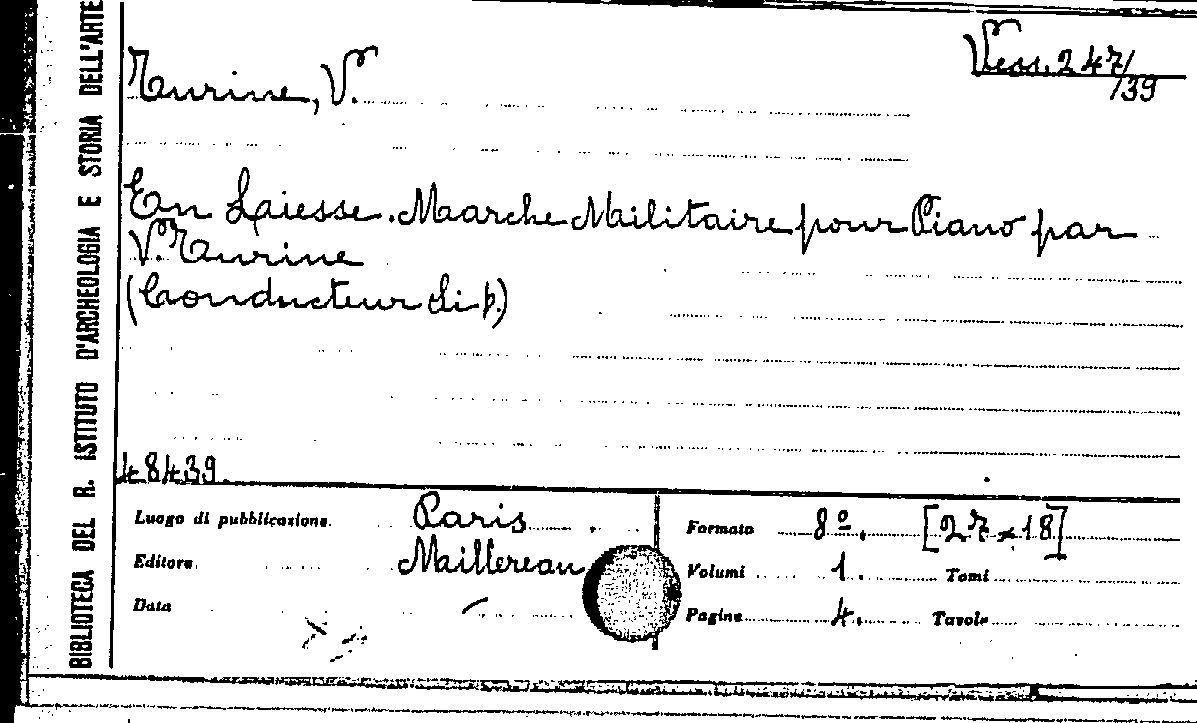 BIBLIOTECA DEL R. ISTITUTO D'ARCHEOLOGIA E STORIA DELL'ARTE
Vess. 247/39
Turine, V.
En Laiesse. Marche Militaire pour Piano par
V. Turine
(Conducteur Si b)
48439
Luogo di pubblicazione Paris
Editore Maillereau
Data
Formato 8º. [27 x 18]
Volumi 1. Tomi
Pagine 4. Tavole